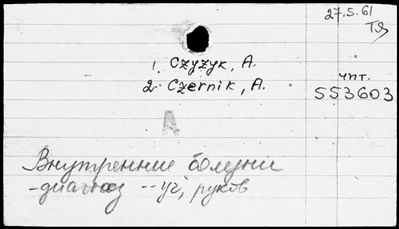 27.5.61
ТЯ
1. Czyzyk, A.
2. Czernik, A.
чит.
553603
A
Внутренние болезни
-диагноз --уч, руков